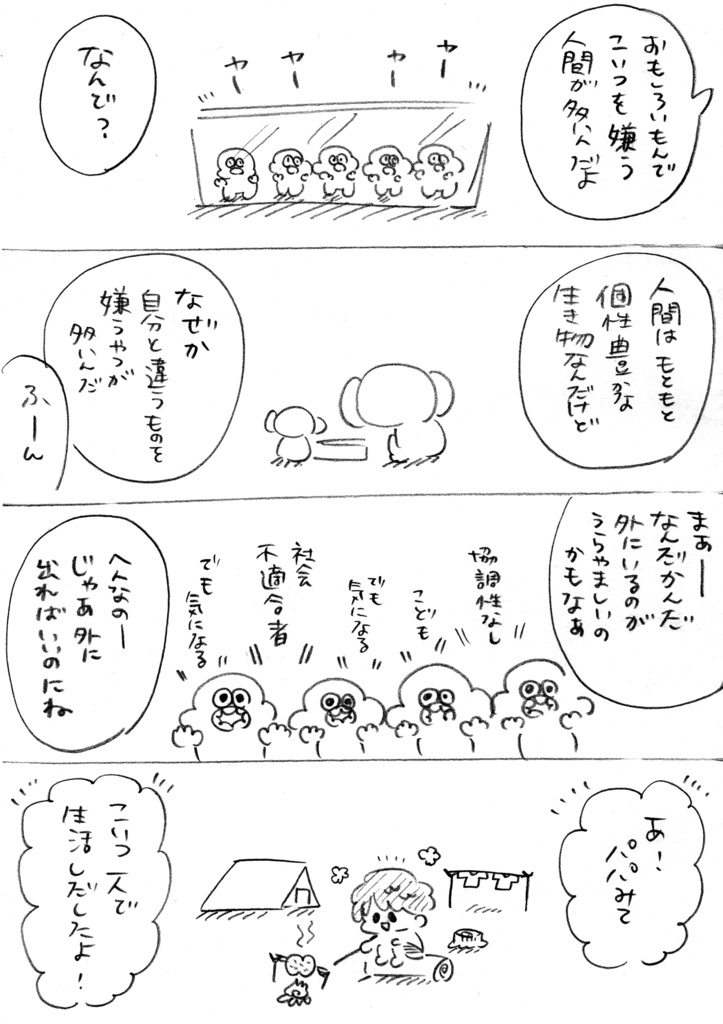 おもしろいもんで
こいつを嫌う
人間が多いんだよ
ヤー
ヤー
ヤー
ヤー
なんで？
人間はもともと
個性豊かな
生き物なんだけど
なぜか
自分と違うものを
嫌うやつが
多いんだ
ふーん
まぁー
なんだかんだ
外にいるのが
うらやましいの
かもなぁ
協調性なし
こども
でも
気になる
社会
不適合者
でも
気になる
へんなのー
じゃあ外に
出ればいいのにね
あ！
パパみて
こいつ一人で
生活しだしたよ！